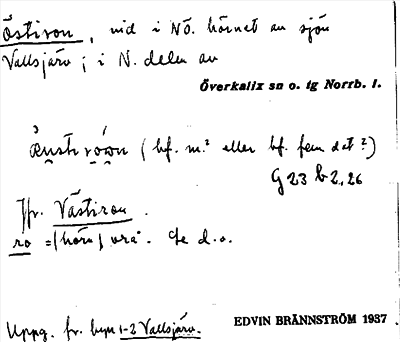 Östiron, vid i NÖ. hörnet av sjön
Vallsjärv; i N. delen av
Överkalix sn o. tg Norrb. l.
(bf. m.² eller bf. fem dat ²)
G 23 b 2, 26
Jfr. Västiron.
ro = (hörn) vrå. Se d.o.
Uppg. fr. byn 1-2 Vallsjärv.
EDVIN BRÄNNSTRÖM 1937